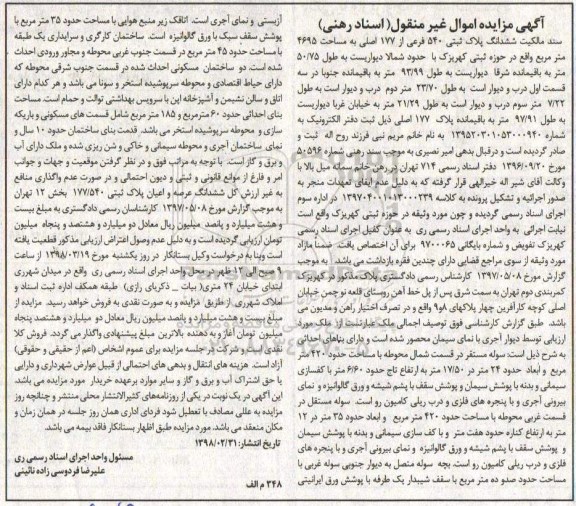 آگهی مزایده اموال غیر منقول( اسناد رهنی)
سند مالکیت ششدانگ پلاک ثبتی ۵۴۰ فرعی از ۱۷۷ اصلی به مساحت ۴۶۹۵
متر مربع واقع در حوزه ثبتی کهریزک با حدود شمالا دیواریست به طول ۵۰/۷۵
متر به باقیمانده شرقا دیواریست به طول ۹۳/۹۹ متر به باقیمانده جنوبا در سه
قسمت اول درب و دیوار است به طول ۲۳/۷۰ متر دوم درب و دیوار است به طول
۷/۲۲ متر سوم درب و دیوار است به طول ۲۱/۲۹ متر به خیابان غربا دیواریست
به طول ۹۷/۹۱ متر به باقیمانده پلاک ۱۷۷ اصلی ذیل ثبت دفتر الکترونیک به
شماره ۱۳۹۵۲۰۳۰۱۰۵۳۰۰۰۹۴۰ به نام خانم مریم نبی فرزند روح اله ثبت و
صادر گردیده است و درقبال بدهی امیر نصیری به موجب سند رهنی شماره ۵۰۵۹۶
مورخ ۱۳۹۶/۰۹/۲۰ دفتر اسناد رسمی ۷۱۴ تهران در رهن خانم مبل بالا با
وکالت آقای شیر اله خیرالهی قرار گرفته که به دلیل عدم ایفای تعهدات منجر به
صدور اجرائیه و تشکیل پرونده به کلاسه ۱۳۹۷۰۴۰۰۱۰۱۳۰۰۰۳۳۹ در اداره سوم
اجرای اسناد رسمی گردیده و چون مورد وثیقه در حوزه ثبتی کهریزک واقع است
نیابت اجرائی به واحد اجرای اسناد رسمی ری به عنوان کفیل اجرای اسناد رسمی
کهریزک تفویض و شماره بایگانی ۹۷۰۰۰۶۵ برای آن اختصاص یافت ضمنا مازاد
مورد وثیقه از سوی مراجع قضایی دارای چندین فقره بازداشت می باشد. به موجب
گزارش مورخ ۱۳۹۷/۰۵/۰۸ کارشناس رسمی دادگستری پلاک مذکور در کهریزک
کمربندی دوم تهران به سمت شرق پس از پل خط آهن روستای قلعه نو چمن خیابان
اصلی کوچه کارآفرین چهار پلاکهای ۸و۹ واقع و در تصرف اختیار راهن و مدیون می
باشد. طبق گزارش کارشناسی فوق توصیف اجمالی ملک عبارتست از زمین مورد
ارزیابی توسط دیوار آجری با نمای سیمان محصور شده است و دارای بناهای احداثی
به شرح ذیل است: سوله مستقر در قسمت شمال محوطه با مساحت حدود ۴۲۰ متر
مربع و ابعاد حدود ۲۴ متر در ۱۷/۵۰ متر به ارتفاع تاج حدود ۶/۶۰ متر با کفسازی
سیمانی و بدنه با پوشش سیمان و پوشش سقف با پشم شیشه و ورق گالوانیزه و نمای
بیرونی آجری و با پنجره های فلزی و درب ریلی کامیون رو است. سوله مستقل در
قسمت غربی محوطه با مساحت حدود ۴۲۰ متر مربع و ابعاد حدود ۳۵ متر در ۱۲
متر به ارتفاع کناره حدود هفت متر و با کف سازی سیمانی و بدنه با پوشش سیمان
و پوشش سقف با پشم شیشه و ورق گالوانیزه و نمای بیرونی آجری و با پنجره های
فلزی و درب ریلی کامیون رو است. بچه سوله متصل به دیوار جنوبی سوله غربی با
مساحت حدود صدو ده متر مربع با سقف شیبدار یک طرفه با پوشش ورق ایرانیتی
آزبستی و نمای آجری است. اتاقک زیر منبع هوایی با مساحت حدود ۳۵ متر مربع با
پوشش سقف سبک با ورق گالوانیزه است. ساختمان کارگری و سرایداری یک طبقه
با مساحت حدود ۴۵ متر مربع در قسمت جنوب غربی محوطه و مجاور ورودی احداث
شده است. دو ساختمان مسکونی احداث شده در قسمت جنوب شرقی محوطه که
دارای حیاط اقتصادی و محوطه سرپوشیده استخر و سونا می باشد و هر کدام دارای
اتاق و سالن نشیمن و آشپزخانه اپن با سرویس بهداشتی توالت و حمام است. مساحت
بنای احداثی حدود ۶۰ مترمربع و ۱۸۵ متر مربع شامل قسمت های مسکونی و باربکه
سازی و محوطه سرپوشیده استخر می باشد. قدمت بنای ساختمان حدود ۱۰ سال و
نمای ساختمان آجری و محوطه سیمانی و خاکی و شن ریزی شده و ملک دارای آب
و برق و گاز است. با توجه به مراتب فوق و در نظر گرفتن موقعیت و جهات و جوانب
امر و فارغ از موانع قانونی و ثبتی و دیون احتمالی و در صورت عدم واگذاری منافع
به غیر ارزش کل ششدانگ عرصه و اعیان پلاک ثبتی ۱۷۷/۵۴۰ بخش ۱۲ تهران
به موجب گزارش مورخ ۱۳۹۷/۰۵/۰۸ کارشناسان رسمی دادگستری به مبلغ بیست
و هشت میلیارد و پانصد میلیون ریال معادل دو میلیارد و هشتصد و پنجاه میلیون
تومان ارزیابی گردیده است و به دلیل عدم وصول اعتراض ارزیابی مذکور قطعیت یافته
است وبنا به درخواست وکیل بستانکار در روز یکشنبه مورخ ۱۳۹۸/۰۳/۱۹ از ساعت
۹ صبح الی ۱۲ ظهر در محل واحد اجرای اسناد رسمی ری واقع در میدان شهرری
ابتدای خیابان ۲۴ متری( بیات _ ذکریای رازی) طبقه همکف اداره ثبت اسناد و
املاک شهرری از طریق مزایده و به صورت نقدی به فروش خواهد رسید. مزایده از
مبلغ بیست و هشت میلیارد و پانصد میلیون ریال معادل دو میلیارد و هشتصد پنجاه
میلیون تومان آغاز و به دهنده بالاترین مبلغ پیشنهادی واگذار می گردد. فروش کلا
نقدی است و شرکت در جلسه مزایده برای عموم اشخاص (اعم از حقیقی و حقوقی)
آزاد است. هزینه های انتقال و بدهی های احتمالی از قبیل عوارض شهرداری و دارایی
یا حق اشتراک آب و برق و گاز و سایر موارد برعهده خریدار مورد مزایده می باشد.
این آگهی در یک نوبت در یکی از روزنامه‌های کثیرالانتشار محلی منتشر و چنانچه روز
مزایده به عللی مصادف با تعطیل شود فردای اداری همان روز جلسه در همان زمان و
مکان منعقد می باشد. مورد مزایده طبق اظهار بستانکار فاقد بیمه می باشد.
تاریخ انتشار: ۱۳۹۸/۰۲/۳۱
مسئول واحد اجرای اسناد رسمی ری
علیرضا فردوسی زاده نائینی
۳۴۸ م الف